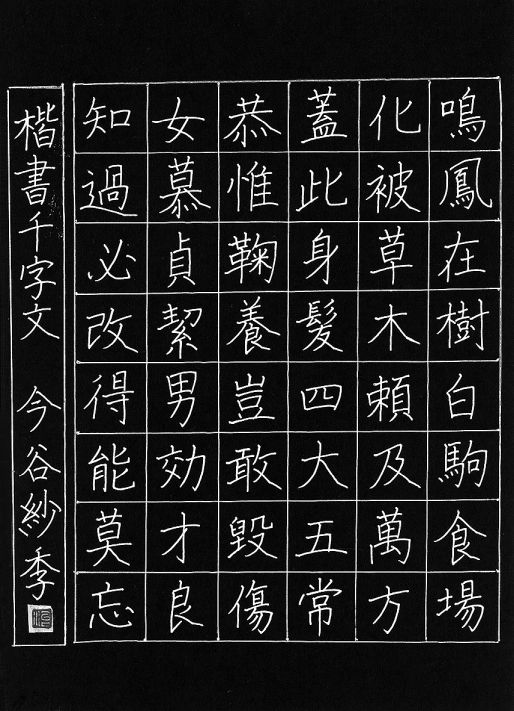 鳴鳳在樹白駒食場
化被草木賴及萬方
蓋此身髮四大五常
恭惟鞠養豈敢毀傷
女慕貞絜男効才良
知過必改得能莫忘
楷書千字文 今谷紗季